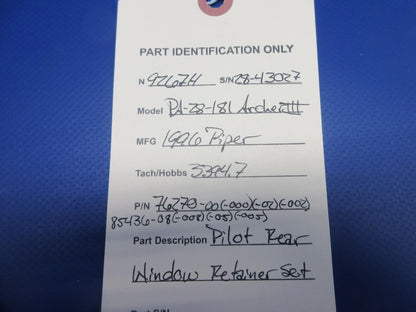 PART IDENTIFICATION ONLY
N 9267H S/N 28-43027
Model PA-28-181 Archer III
MFG 1996 Piper
Tach/Hobbs 5394.7
P/N 76270-00(-000)(-02)(-002)
85436-08(-008)(-05)(-005)
Part Description Pilot Rear
Window Retainer Set